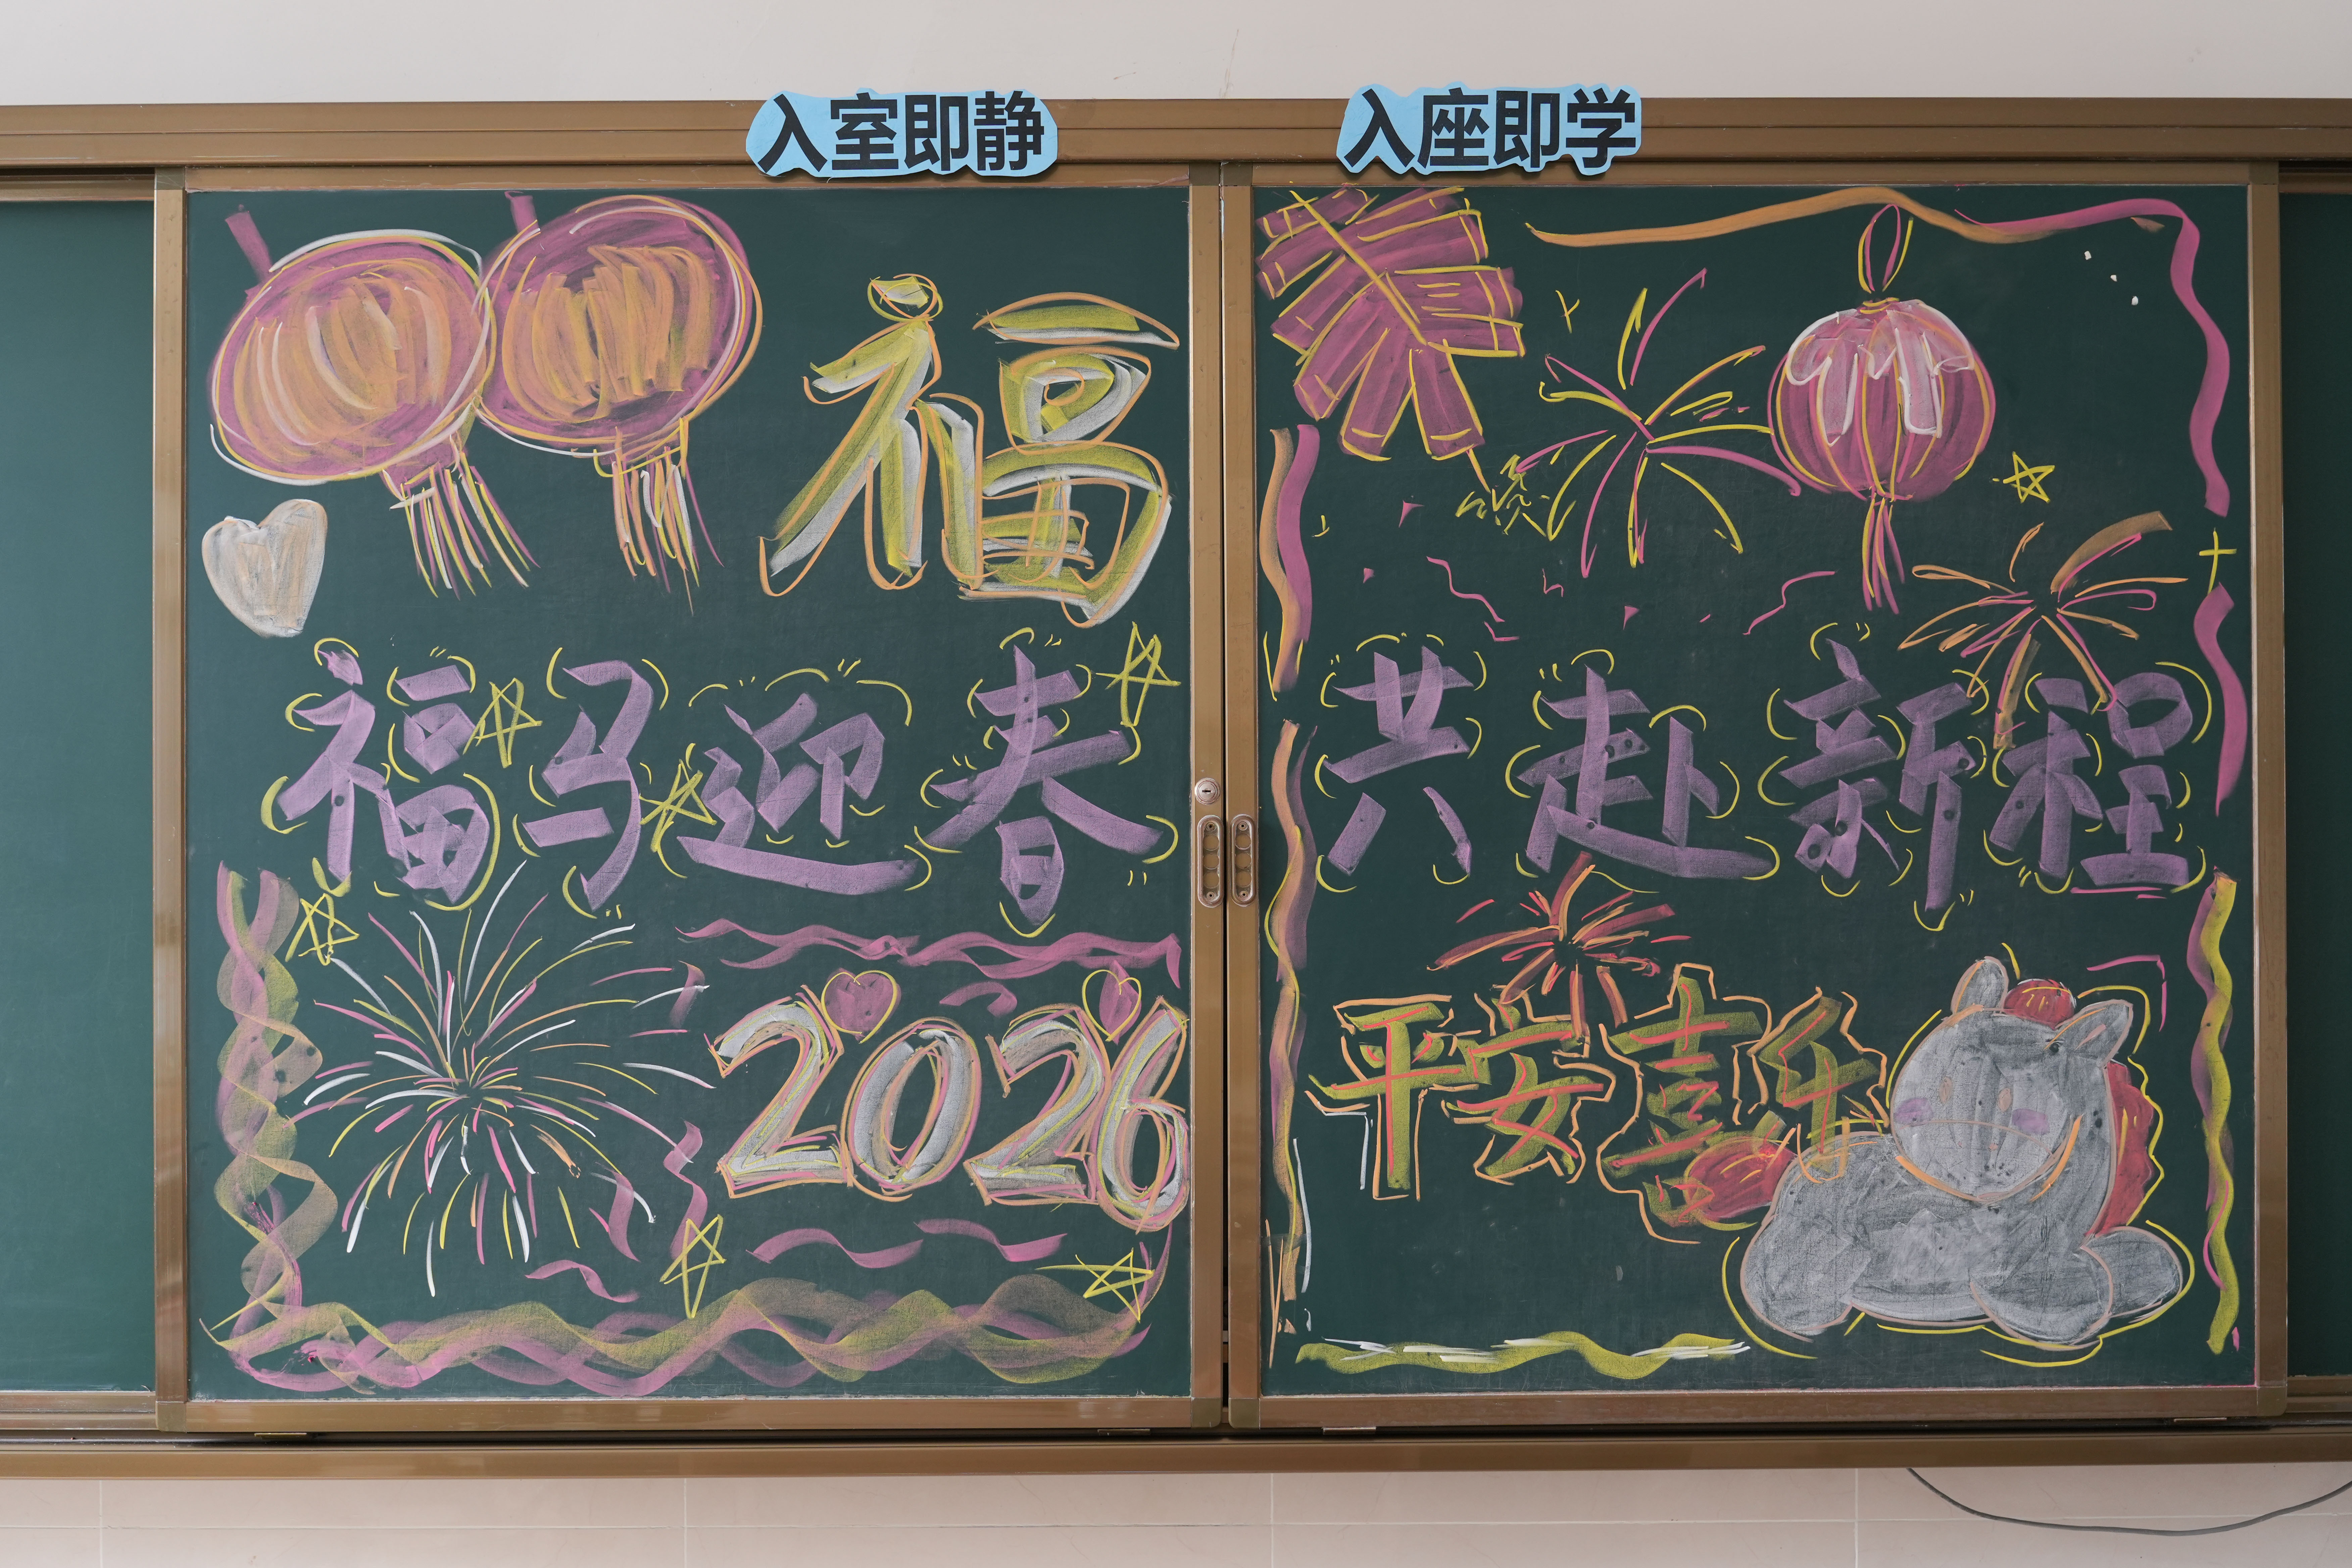 入室即静
入座即学
福
福马迎春
共赴新程
2026
平安喜乐